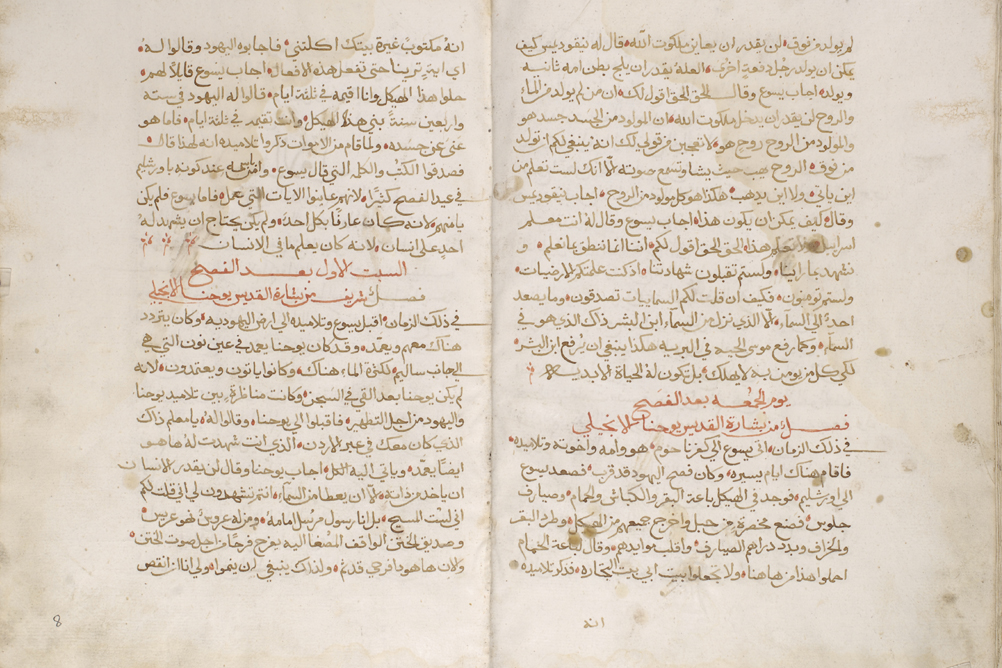 لم يولد من فوق لن يقدر ان يعاين ملكوت الله قال له نيقوديمس كيف
يمكن ان يولد رجل دفعة اخرى العله يقدر ان يلج بطن امه ثانيه
ويولد اجاب يسوع وقال الحق الحق اقول لك ان من لم يولد من الماء
والروح لن يقدر ان يدخل ملكوت الله ان المولود من الجسد جسد هو
والمولود من الروح روح هو لا تعجبن من قولي لك انه ينبغي لكم ان تولد
من فوق الروح يهب حيث يشا وتسمع صوته الا انك لست تعلم من
اين ياتي ولا اين يذهب هكذا هو كل مولود من الروح اجاب نيقوديمس
وقال كيف يمكن ان يكون هذا اجاب يسوع وقال له انت معلم
اسراييل ولا تعلم هذا الحق الحق اقول لكم اننا انما ننطق بما نعلم و
نشهد بما راينا ولستم تقبلون شهادتنا اذ كنت علمتكم الارضيات
ولستم تومنون فكيف ان قلت لكم السماييات تصدقون وما يصعد
احد الى السماء الا الذي نزل من السماء ابن البشر ذاك الذي هو في
السماء وكما رفع موسى الحيه في البريه هكذا ينبغي ان يرفع ابن البشر
لكي كل من يومن به لا يهلك بل تكون له الحياة الابديه
يوم الجمعه بعد الفصح
فصل من بشارة القديس يوحنا الانجيلي
في ذلك الزمان اتى يسوع الى كفرناحوم هو وامه واخوته وتلاميذه
فاقام هناك ايام يسيره وكان فصح اليهود قد قرب فصعد يسوع
الى اورشليم فوجد في الهيكل باعة البقر والكباش والحمام وصيارف
جلوس فصنع مخصرة من حبل واخرج جميعهم من الهيكل وطرد البقر
والخراف وبدد دراهم الصيارف واقلب موايدهم وقال لباعة الحمام
احملوا هذا من هاهنا ولا تجعلوا بيت ابي بيت التجاره فذكر تلاميذه
انه
انه مكتوب غيرة بيتك اكلتني فاجابوه اليهود وقالوا له
اي اية ترينا حتى تفعل هذه الافعال اجاب يسوع قايلا لهم
حلوا هذا الهيكل وانا اقيمه في ثلثة ايام قالوا له اليهود في سته
واربعين سنة بني هذا الهيكل وانت تقيمه في ثلثة ايام فاما هو
عنى عن جسده ولما قام من الاموات ذكروا تلاميذه انه لهذا قال
فصدقوا الكتب والكلمه التي قال يسوع وعند كونه باورشليم
في عيد الفصح كثيرا لانهم عاينوا الايات التي عمل فاما يسوع فلم يكن
يامنهم لانه كان عارفا بكل احد ولم يكن يحتاج ان يشهد له
احد على انسان لانه كان يعلم ما في الانسان
السبت الاول بعد الفصح
فصل شريف من بشارة القديس يوحنا الانجيلي
في ذلك الزمان اقبل يسوع وتلاميذه الى ارض اليهوديه وكان يتردد
هناك معهم ويعمد وقد كان يوحنا يعمد في عين نون التي هي
الى جانب ساليم لكثرة الماء هناك وكانوا ياتون ويعتمدون لانه
لم يكن يوحنا بعد القي في السجن وكانت مناظرة بين تلاميذ يوحنا
واليهود من اجل التطهير فاقبلوا الى يوحنا وقالوا له يا معلم ذاك
الذي كان معك في عبر الاردن الذي انت شهدت له ها هو
ايضا يعمد وياتي اليه الكل اجاب يوحنا وقال لن يقدر الانسان
ان ياخذ من ذاته الا ان يعطا من السماء انتم تشهدون لي اني قلت لكم
اني لست المسيح بل انا رسول مرسل امامه ومن له عروس فهو عريس
وصديق الختن الواقف المصغا اليه يفرح فرحا من اجل صوت الختن
والان ها هو ذا فرحي قد تم ولذلك ينبغي لن ينموا ولي انا ان انقص
8